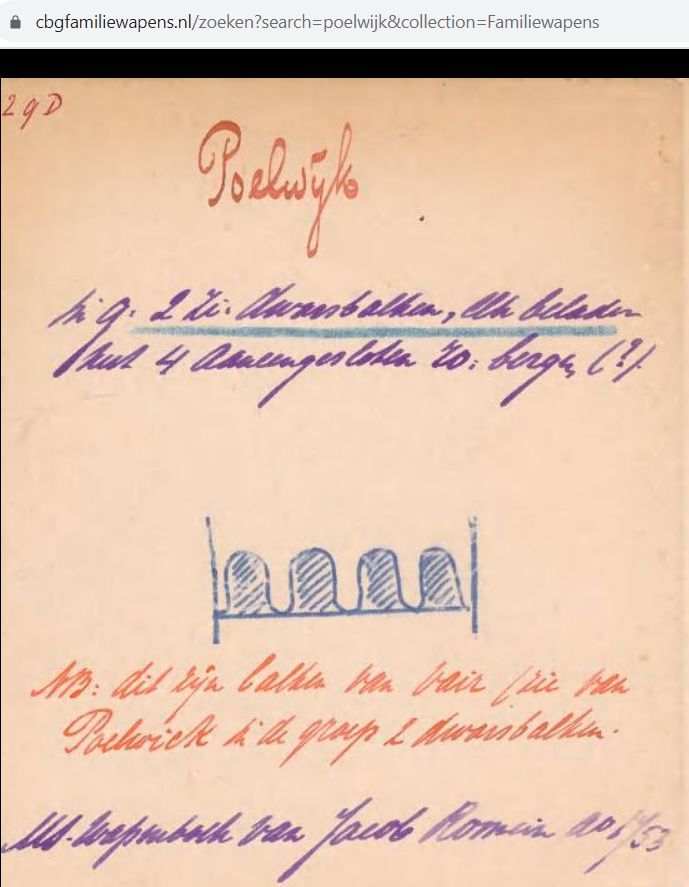 cbgfamiliewapens.nl/zoeken?search=poelwijk&collection=Familiewapens
29D
Poelwijk
in g. 2 zi. dwarsbalken, elk beladen
met 4 aaneengesloten ro: bergen (?)
NB: dit zijn balken van vair (zie van
Poelwick in de groep 2 dwarsbalken.
MS. Wapenboek van Jacob Romein ao